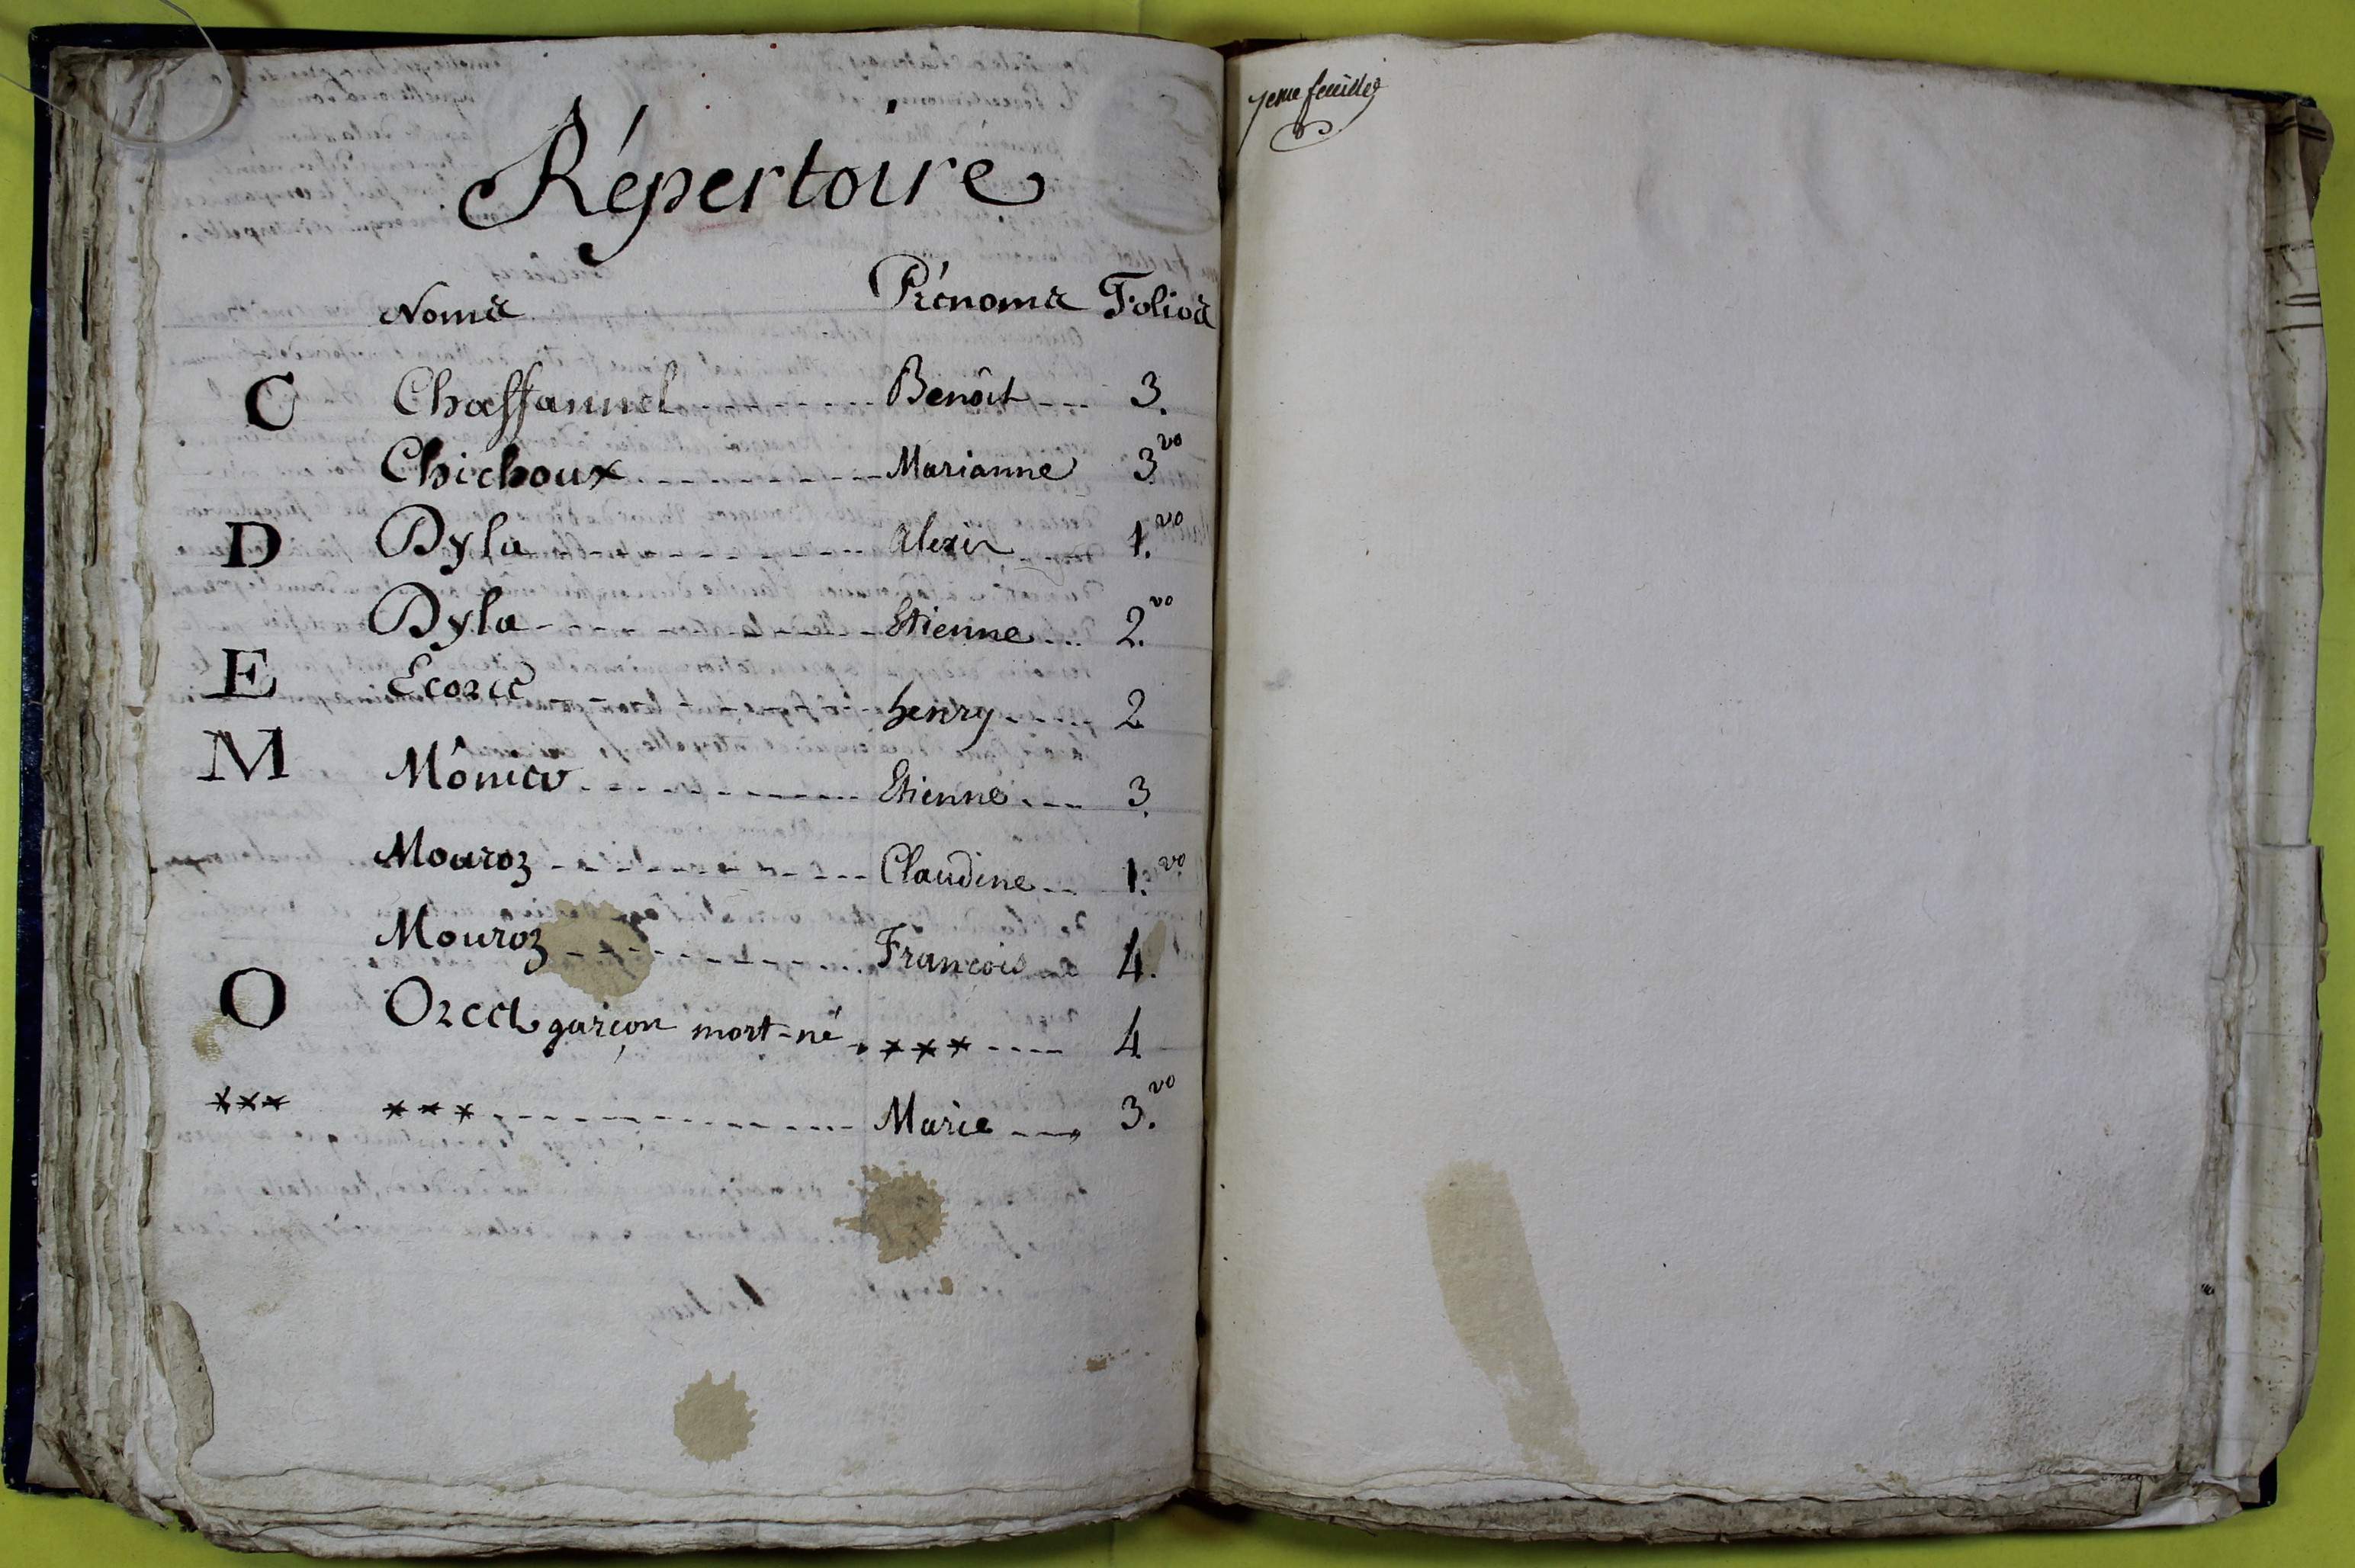 Répertoire
Noms Prénoms Folios
C Chaffannel Benoit 3.
Chichoux Marianne 3.vo
D Dyla Alexis 1.vo
Dyla Etienne 2.vo
E Ecorc henry 2
M Mônier Etienne 3.
Mouroz Claudine 1.vo
Mouroz François 4.
O Orcel garçon mort-né *** 4
*** *** Marie 3.vo
7eme feuillet